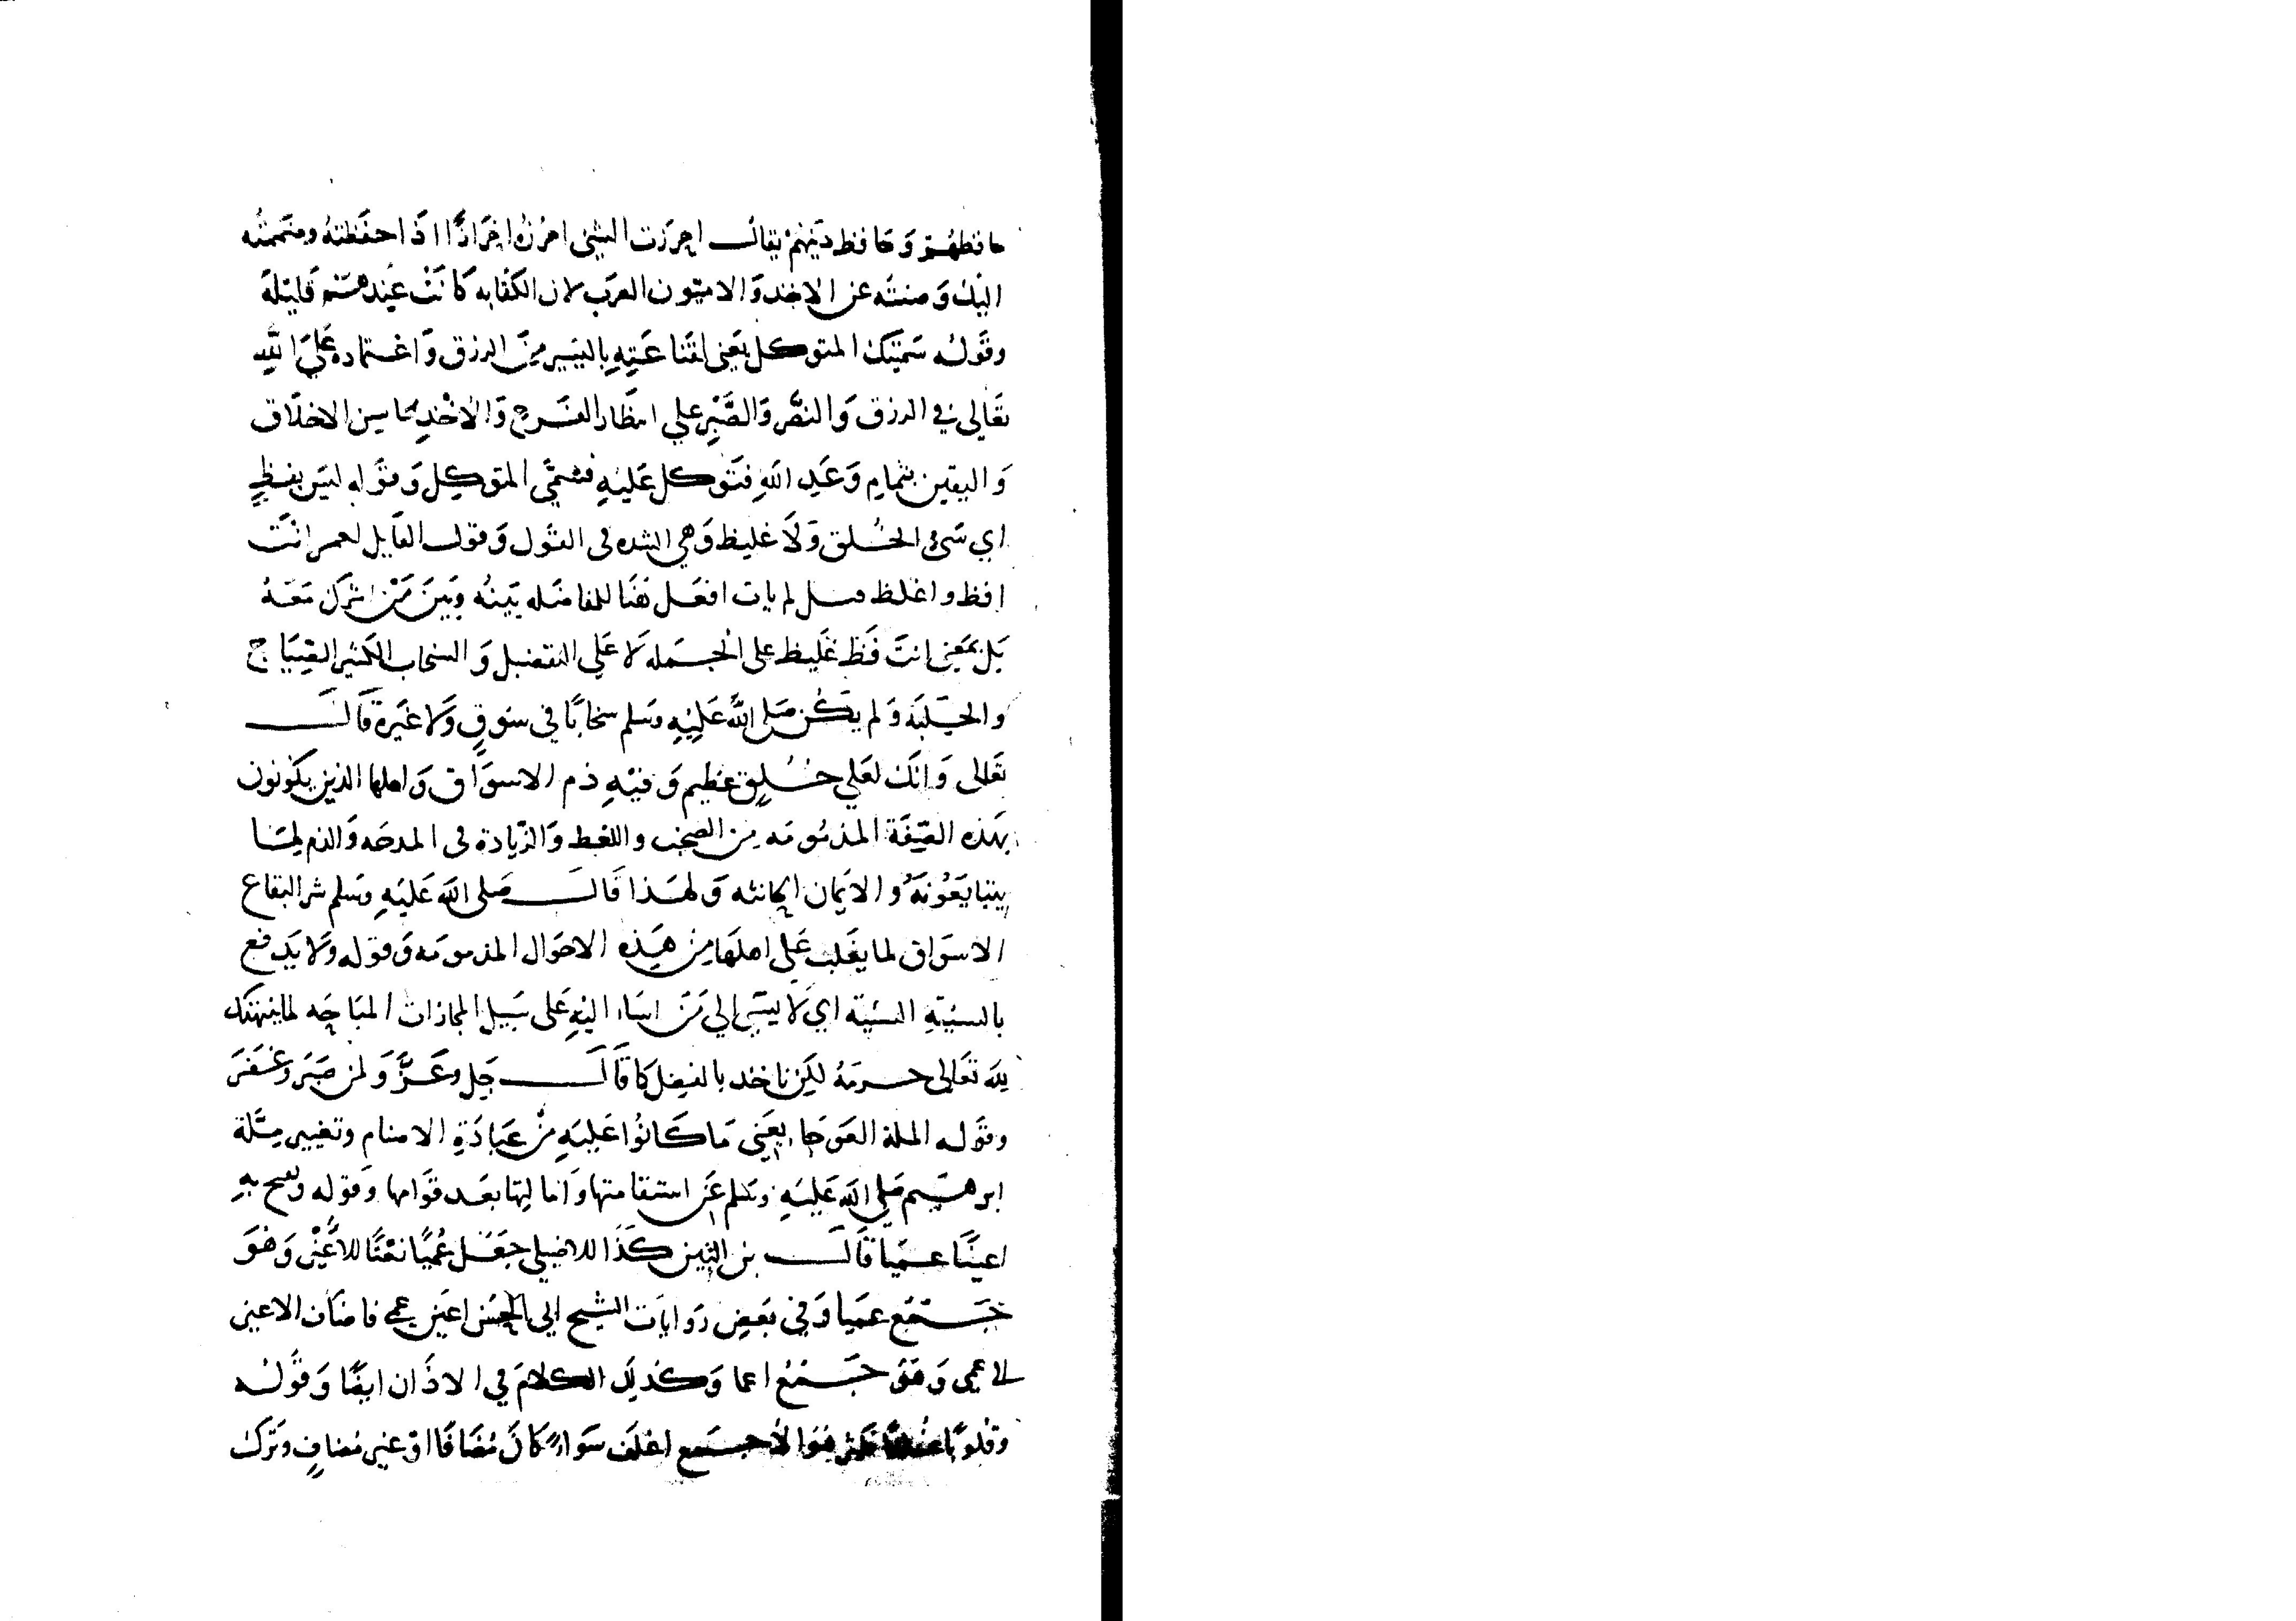 حافظهم وَحَافظ دينهم يقال احرزت الشئ احرزه احرازًا اذَا حفَظته وضممته
اليك وَصنته عن الاخذ وَالاميون العرَب لان الكتابه كَانَت عندهم قليلة
وقَوله سَمّيتك المتوكل يَعني لقنَاعَتِهِ باليسِير مِنَ الرزق وَاعتماده عَلَى اللهِ
تعَالى في الرزق وَالنصْر وَالصَّبْرِ على انتظار الفَرج وَالاخْذِ بمحاسن الاخلاق
وَاليقين بتمامِ وَعَدِ اللهِ فتَوكل عَلَيهِ فسُمّي المتوكل وَقوَله ليَس بفظٍ
اي سَيئ الخُلق وَلَا غليظ وَهي الشده في القَول وَقول القَايل لعمر انْتَ
افظ واغلظ قيل لم يات افعَل هنَا للمفاضَله بَينهُ وَبَينَ مَنْ اشرك مَعَهُ
بَل بمَعنى انتَ فَظ غَليظ على الجمله لَا عَلى التفضيل وَ السخاب الكثير الصِيَاح
والجلبَه وَلم يَكُن صَلى اللهُ عَلَيهِ وسَلم سخابًا في سَوقٍ وَلا غيَرهَ قَالَ
تعَالى وَانَكَ لعَلى خُلقٍ عَظِيم وَفيْهِ ذم الاسوَاق وَاهلها الذين يَكونون
بهَذه الصِفَة المذمومَه مِن الصخب واللغط وَالزيادة في المدحَه وَالذم لِمَا
يتبَايَعُونَهُ والايَمان الحانثه وَلهَذا قَالَ صَلى اللهَ عَليَهِ وسَلم شر البقاع
الاسوَاق لما يغَلب عَلى اهلهَا مِن هَذِه الاحوَال المذمومَه وَقوله وَلا يَدفع
بالسيئة السَيئة اي لَا يسئ الي مَنَ اسَاء اليَهِ عَلى سَبيل المجازات المبَاحَه ما لم ينتهك
لله تعَالى حرمَة لَكِن ناخذ بالفضِل كما قَالَ جَل وعَزَّ وَلمن صَبَر وَغَفرَ
وقَوله الملة العَوجَا، يَعني مَا كَانُوا عَليهِ مِنْ عبَادَةِ الاصنام وتغيير مِلَّة
ابرهيم صَلى اللهَ عَليَهِ وسَلم عَن استقامتها وَامالتها بعَد قوَامها وَقوله وَيفتح بهِ
اعيُنًا عميًا قَالَ بن التِين كَذَا للاصيلي جَعَل عُميًا نعْتًا للأَعْيُن وَهُوَ
جَمَع عميَا وَفي بعَض رَوايَات الشيخ ابي الحسَن اعيَن عمي فاضَاف الاعين
الى عمي وَهوَ جَمَع اعما وَكذلِك الكلامَ في الاذَان ايضًا وَقَوله
وقُلوبًا غلفًا هُوَ الاَ جَمع اغلَف سَوَاء كَانَ مُضَافًا اوَ غير مُضافٍ وترك